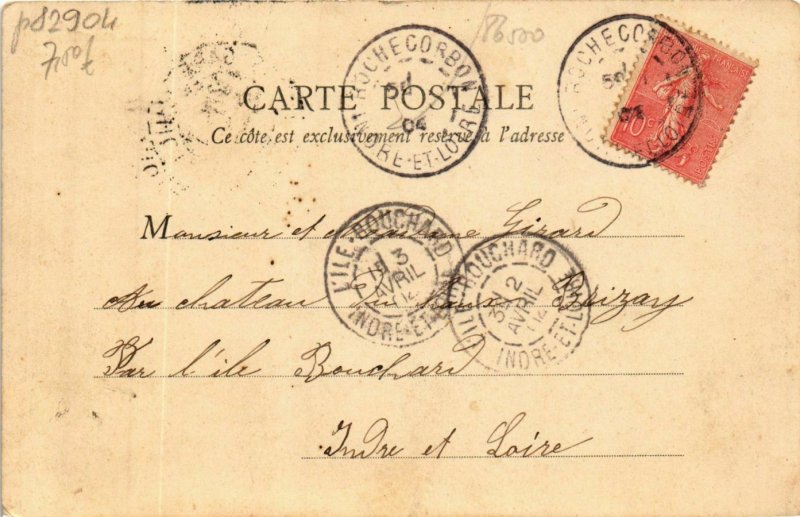 p82904
7,50f
86500
ROCHECORBON
04
INDRE-ET-LOIRE
ROCHECORBON
04
FRANÇAISE
10c
CARTE POSTALE
Ce côté est exclusivement réservé à l'adresse
Monsieur et Madame Girard
L'ILE-BOUCHARD
3
AVRIL
INDRE-ET-LOIRE
BOUCHARD
2
AVRIL
INDRE-ET-LOIRE
Au chateau Brizay
Par l'ile Bouchard
Indre et Loire